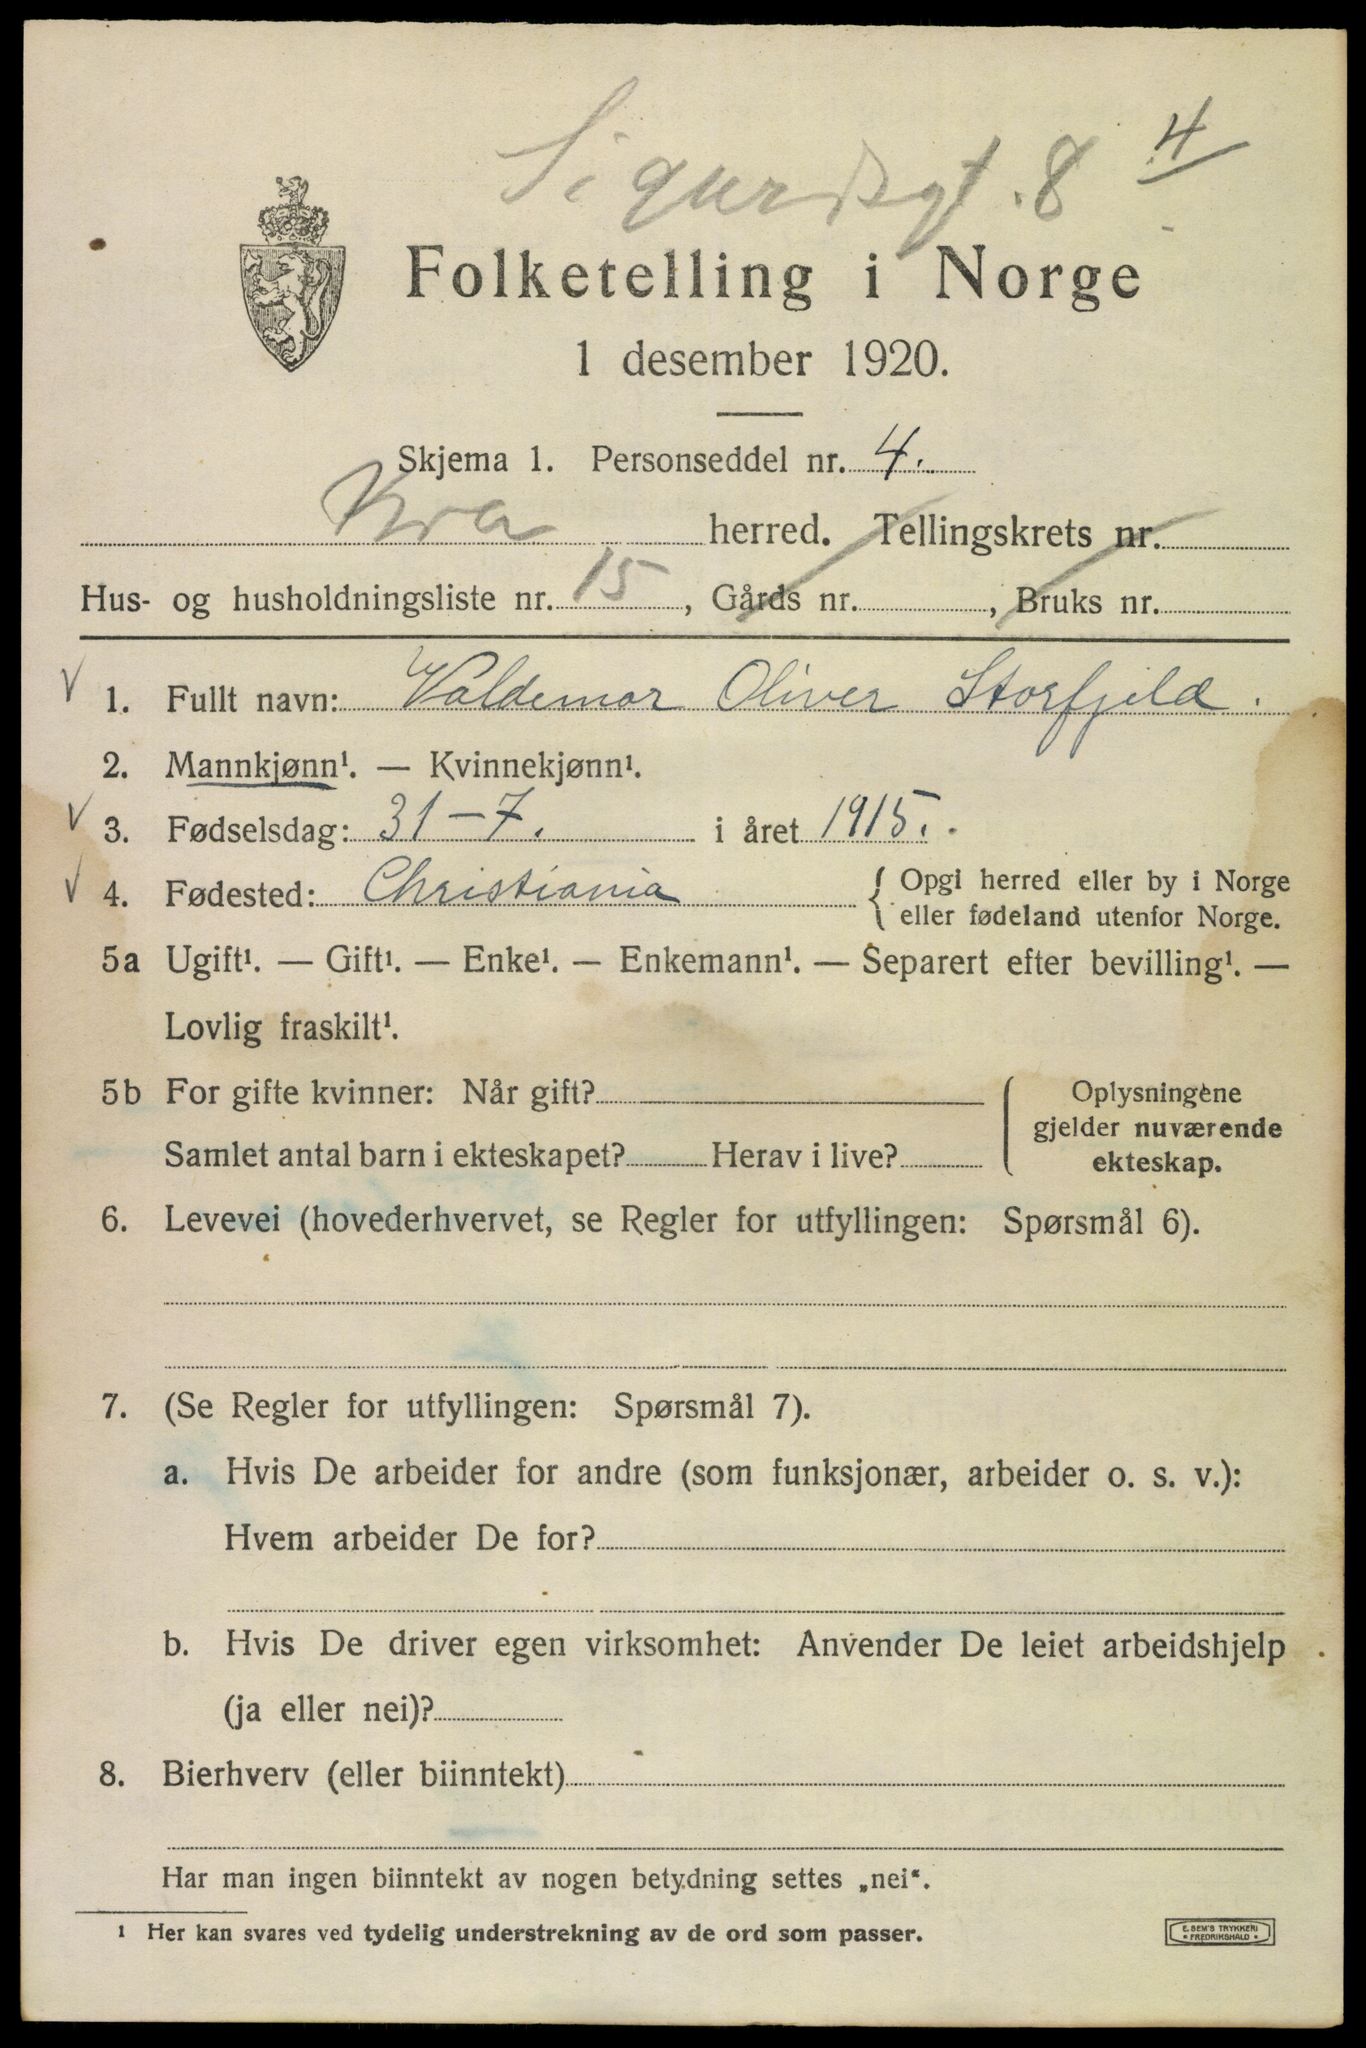 Sigurdsgt. 8 4
Folketelling i Norge
1 desember 1920.
Skjema 1. Personseddel nr. 4.
Kra herred. Tellingskrets nr.
Hus- og husholdningsliste nr. 15, Gårds nr. , Bruks nr.
1. Fullt navn: Valdemar Oliver Storfjeld.
2. Mannkjønn¹. — Kvinnekjønn¹.
3. Fødselsdag: 31-7. i året 1915.
4. Fødested: Christiania { Opgi herred eller by i Norge
eller fødeland utenfor Norge.
5a Ugift¹. — Gift¹. — Enke¹. — Enkemann¹. — Separert efter bevilling¹. —
Lovlig fraskilt¹.
5b For gifte kvinner: Når gift? ( Oplysningene
gjelder nuværende
Samlet antal barn i ekteskapet? Herav i live? ekteskap.
6. Levevei (hovederhvervet, se Regler for utfyllingen: Spørsmål 6).
7. (Se Regler for utfyllingen: Spørsmål 7).
a. Hvis De arbeider for andre (som funksjonær, arbeider o. s. v.):
Hvem arbeider De for?
b. Hvis De driver egen virksomhet: Anvender De leiet arbeidshjelp
(ja eller nei)?
8. Bierhverv (eller biinntekt)
Har man ingen biinntekt av nogen betydning settes „nei“.
¹ Her kan svares ved tydelig understrekning av de ord som passer.
E. SEM'S TRYKKERI
• FREDRIKSHALD •